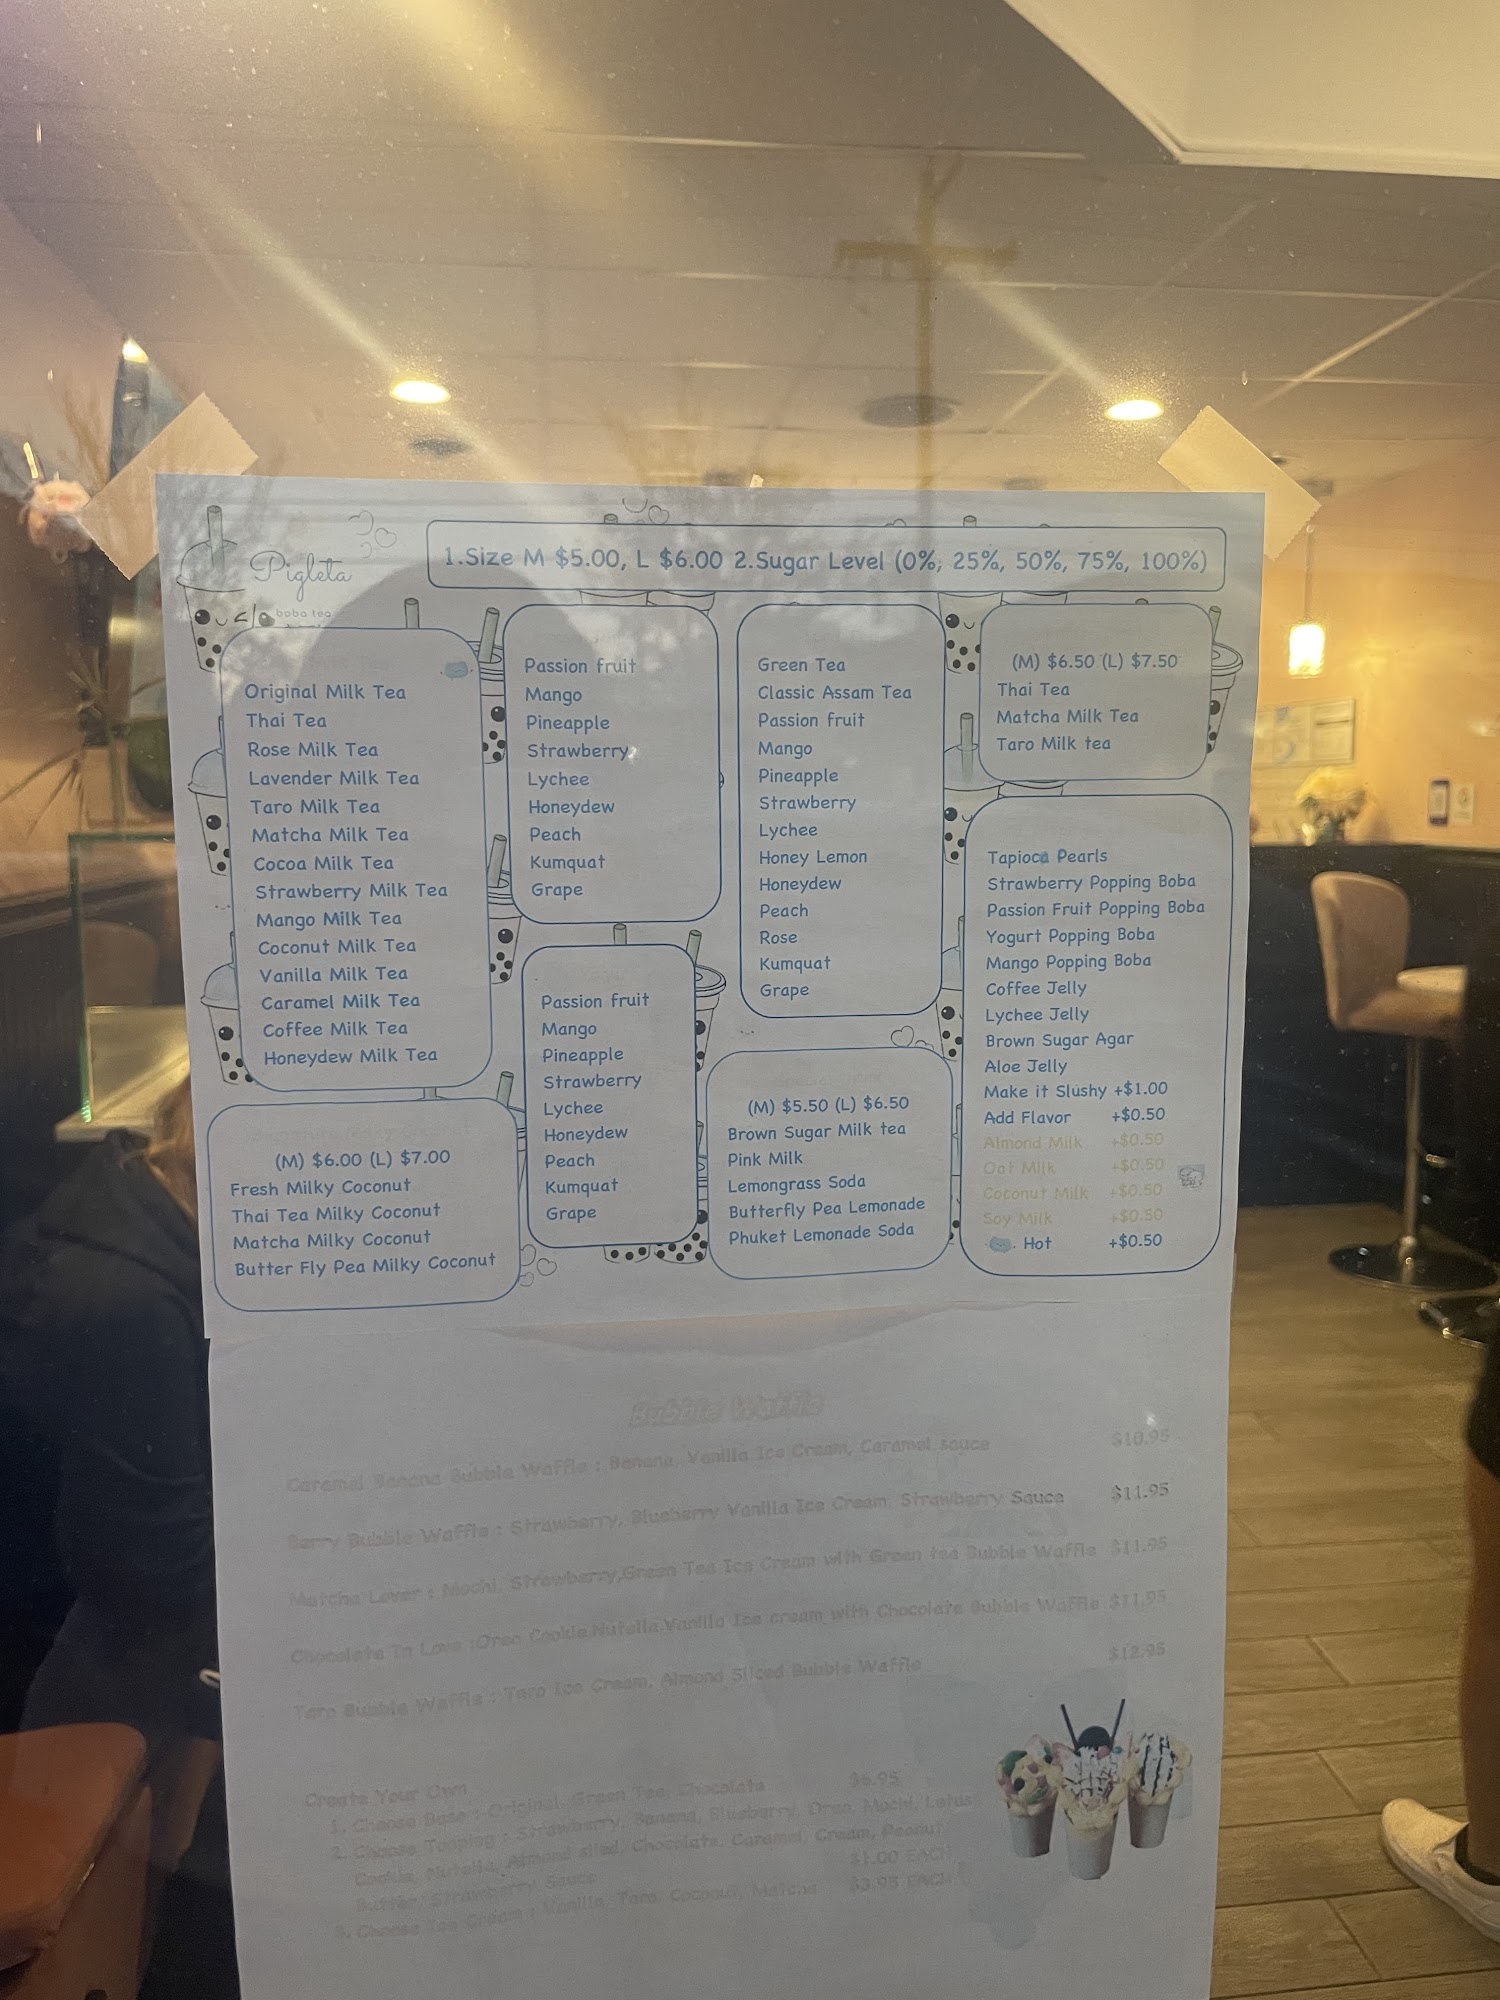 Pigleta
boba tea
1.Size M $5.00, L $6.00 2.Sugar Level (0%, 25%, 50%, 75%, 100%)
Original Milk Tea
Thai Tea
Rose Milk Tea
Lavender Milk Tea
Taro Milk Tea
Matcha Milk Tea
Cocoa Milk Tea
Strawberry Milk Tea
Mango Milk Tea
Coconut Milk Tea
Vanilla Milk Tea
Caramel Milk Tea
Coffee Milk Tea
Honeydew Milk Tea
(M) $6.00 (L) $7.00
Fresh Milky Coconut
Thai Tea Milky Coconut
Matcha Milky Coconut
Butter Fly Pea Milky Coconut
Passion fruit
Mango
Pineapple
Strawberry
Lychee
Honeydew
Peach
Kumquat
Grape
Passion fruit
Mango
Pineapple
Strawberry
Lychee
Honeydew
Peach
Kumquat
Grape
Green Tea
Classic Assam Tea
Passion fruit
Mango
Pineapple
Strawberry
Lychee
Honey Lemon
Honeydew
Peach
Rose
Kumquat
Grape
(M) $5.50 (L) $6.50
Brown Sugar Milk tea
Pink Milk
Lemongrass Soda
Butterfly Pea Lemonade
Phuket Lemonade Soda
(M) $6.50 (L) $7.50
Thai Tea
Matcha Milk Tea
Taro Milk tea
Tapioca Pearls
Strawberry Popping Boba
Passion Fruit Popping Boba
Yogurt Popping Boba
Mango Popping Boba
Coffee Jelly
Lychee Jelly
Brown Sugar Agar
Aloe Jelly
Make it Slushy +$1.00
Add Flavor +$0.50
Almond Milk +$0.50
Oat Milk +$0.50
Coconut Milk +$0.50
Soy Milk +$0.50
Hot +$0.50
Bubble Waffle
Caramel Banana Bubble Waffle : Banana, Vanilla Ice Cream, Caramel sauce $10.95
Berry Bubble Waffle : Strawberry, Blueberry Vanilla Ice Cream, Strawberry Sauce $11.95
Matcha Lover : Mochi, Strawberry,Green Tea Ice Cream with Green tea Bubble Waffle $11.95
Chocolate In Love :Oreo Cookie,Nutella,Vanilla Ice cream with Chocolate Bubble Waffle $11.95
Taro Bubble Waffle : Taro Ice Cream, Almond Sliced Bubble Waffle $12.95
Create Your Own
1. Choose Base : Original, Green Tea, Chocolate $6.95
2. Choose Topping : Strawberry, Banana, Blueberry, Oreo, Mochi, Lotus
Cookie, Nutella, Almond sliced, Chocolate, Caramel, Cream, Peanut
Butter, Strawberry Sauce $1.00 EACH
3. Choose Ice Cream : Vanilla, Taro, Coconut, Matcha $3.95 EACH